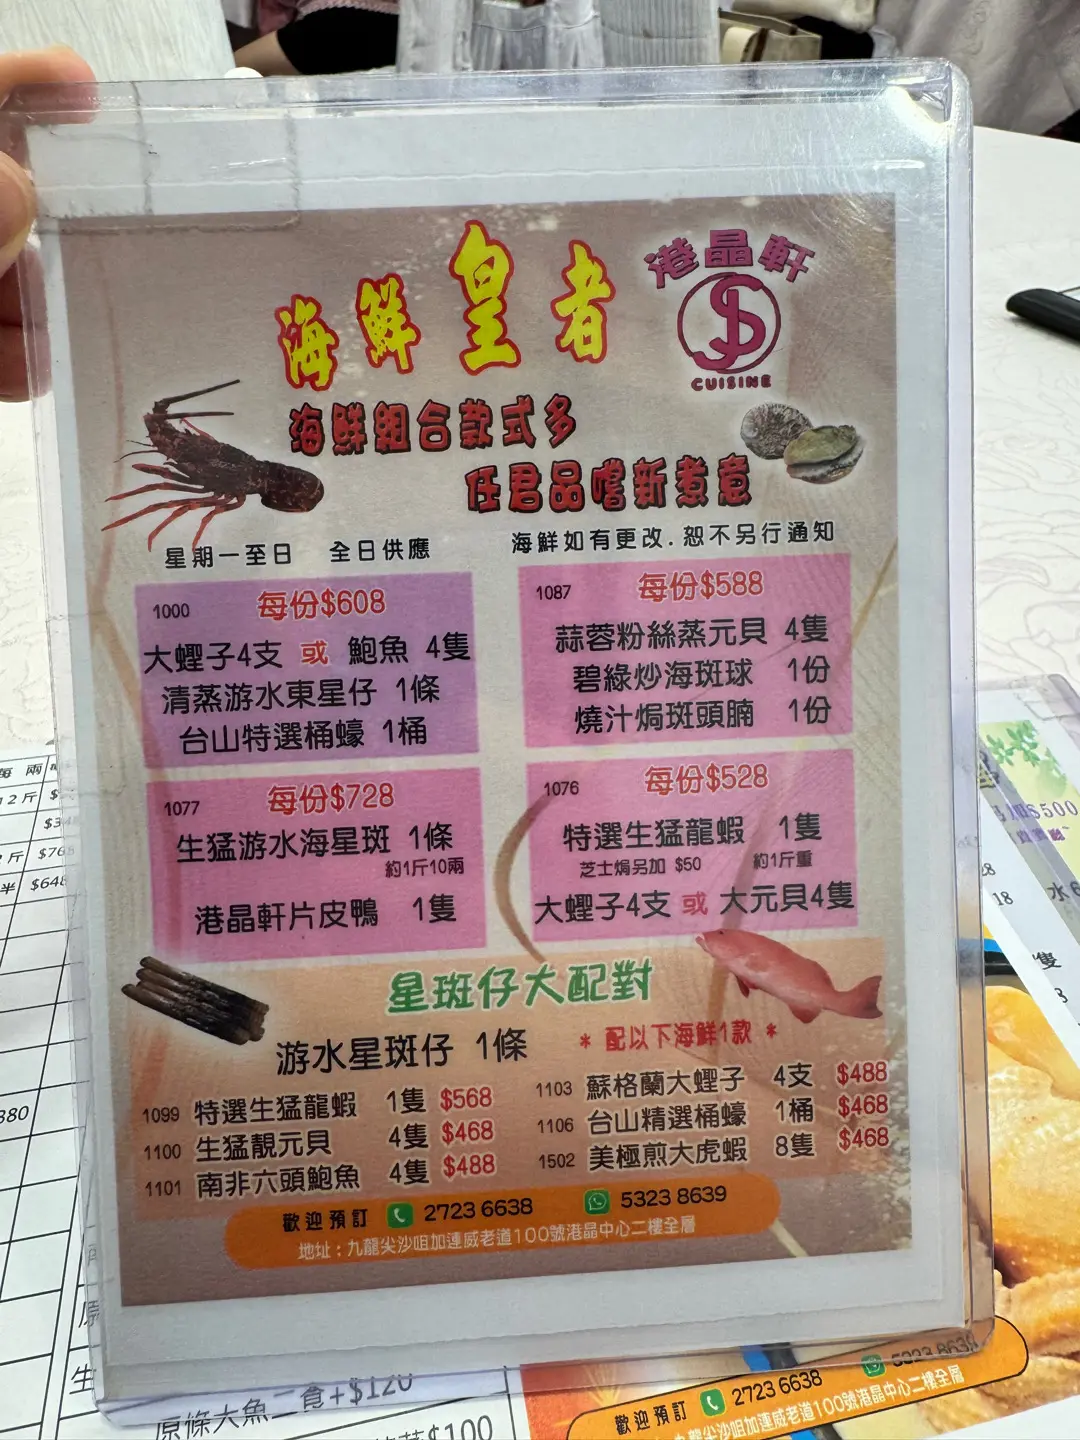 港晶軒
CUISINE
海鮮皇者
海鮮組合款式多
任君品嚐新煮意
星期一至日 全日供應
海鮮如有更改.恕不另行通知
1000 每份$608
大蟶子4支 或 鮑魚 4隻
清蒸游水東星仔 1條
台山特選桶蠔 1桶
1087 每份$588
蒜蓉粉絲蒸元貝 4隻
碧綠炒海斑球 1份
燒汁焗斑頭腩 1份
1077 每份$728
生猛游水海星斑 1條
約1斤10兩
港晶軒片皮鴨 1隻
1076 每份$528
特選生猛龍蝦 1隻
芝士焗另加 $50 約1斤重
大蟶子4支 或 大元貝4隻
星斑仔大配對
游水星斑仔 1條 * 配以下海鮮1款 *
1099 特選生猛龍蝦 1隻 $568
1100 生猛靚元貝 4隻 $468
1101 南非六頭鮑魚 4隻 $488
1103 蘇格蘭大蟶子 4支 $488
1106 台山精選桶蠔 1桶 $468
1502 美極煎大虎蝦 8隻 $468
歡迎預訂 2723 6638 5323 8639
地址：九龍尖沙咀加連威老道100號港晶中心二樓全層
每 兩
12斤
$768
半 $648
380
原條大魚二食+$120
$100
歡迎預訂 2723 6638 5323 8639
九龍尖沙咀加連威老道100號港晶中心二樓全層